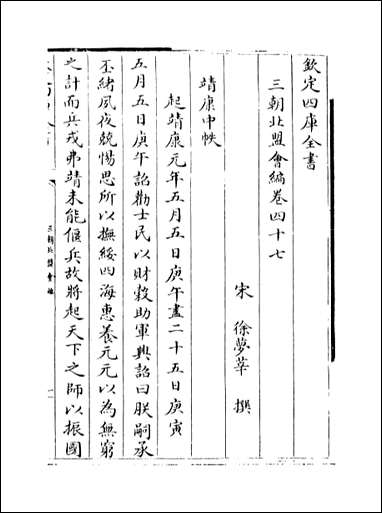 欽定四庫全書
三朝北盟會編卷四十七
宋　徐夢莘　撰
靖康中帙
起靖康元年五月五日庚午盡二十五日庚寅
五月五日庚午詔勸士民以財穀助軍興詔曰朕嗣承
丕緒夙夜兢惕思所以撫綏四海惠養元元以為無窮
之計而兵戎弗靖未能偃兵故將起天下之師以振國
三朝北盟會編